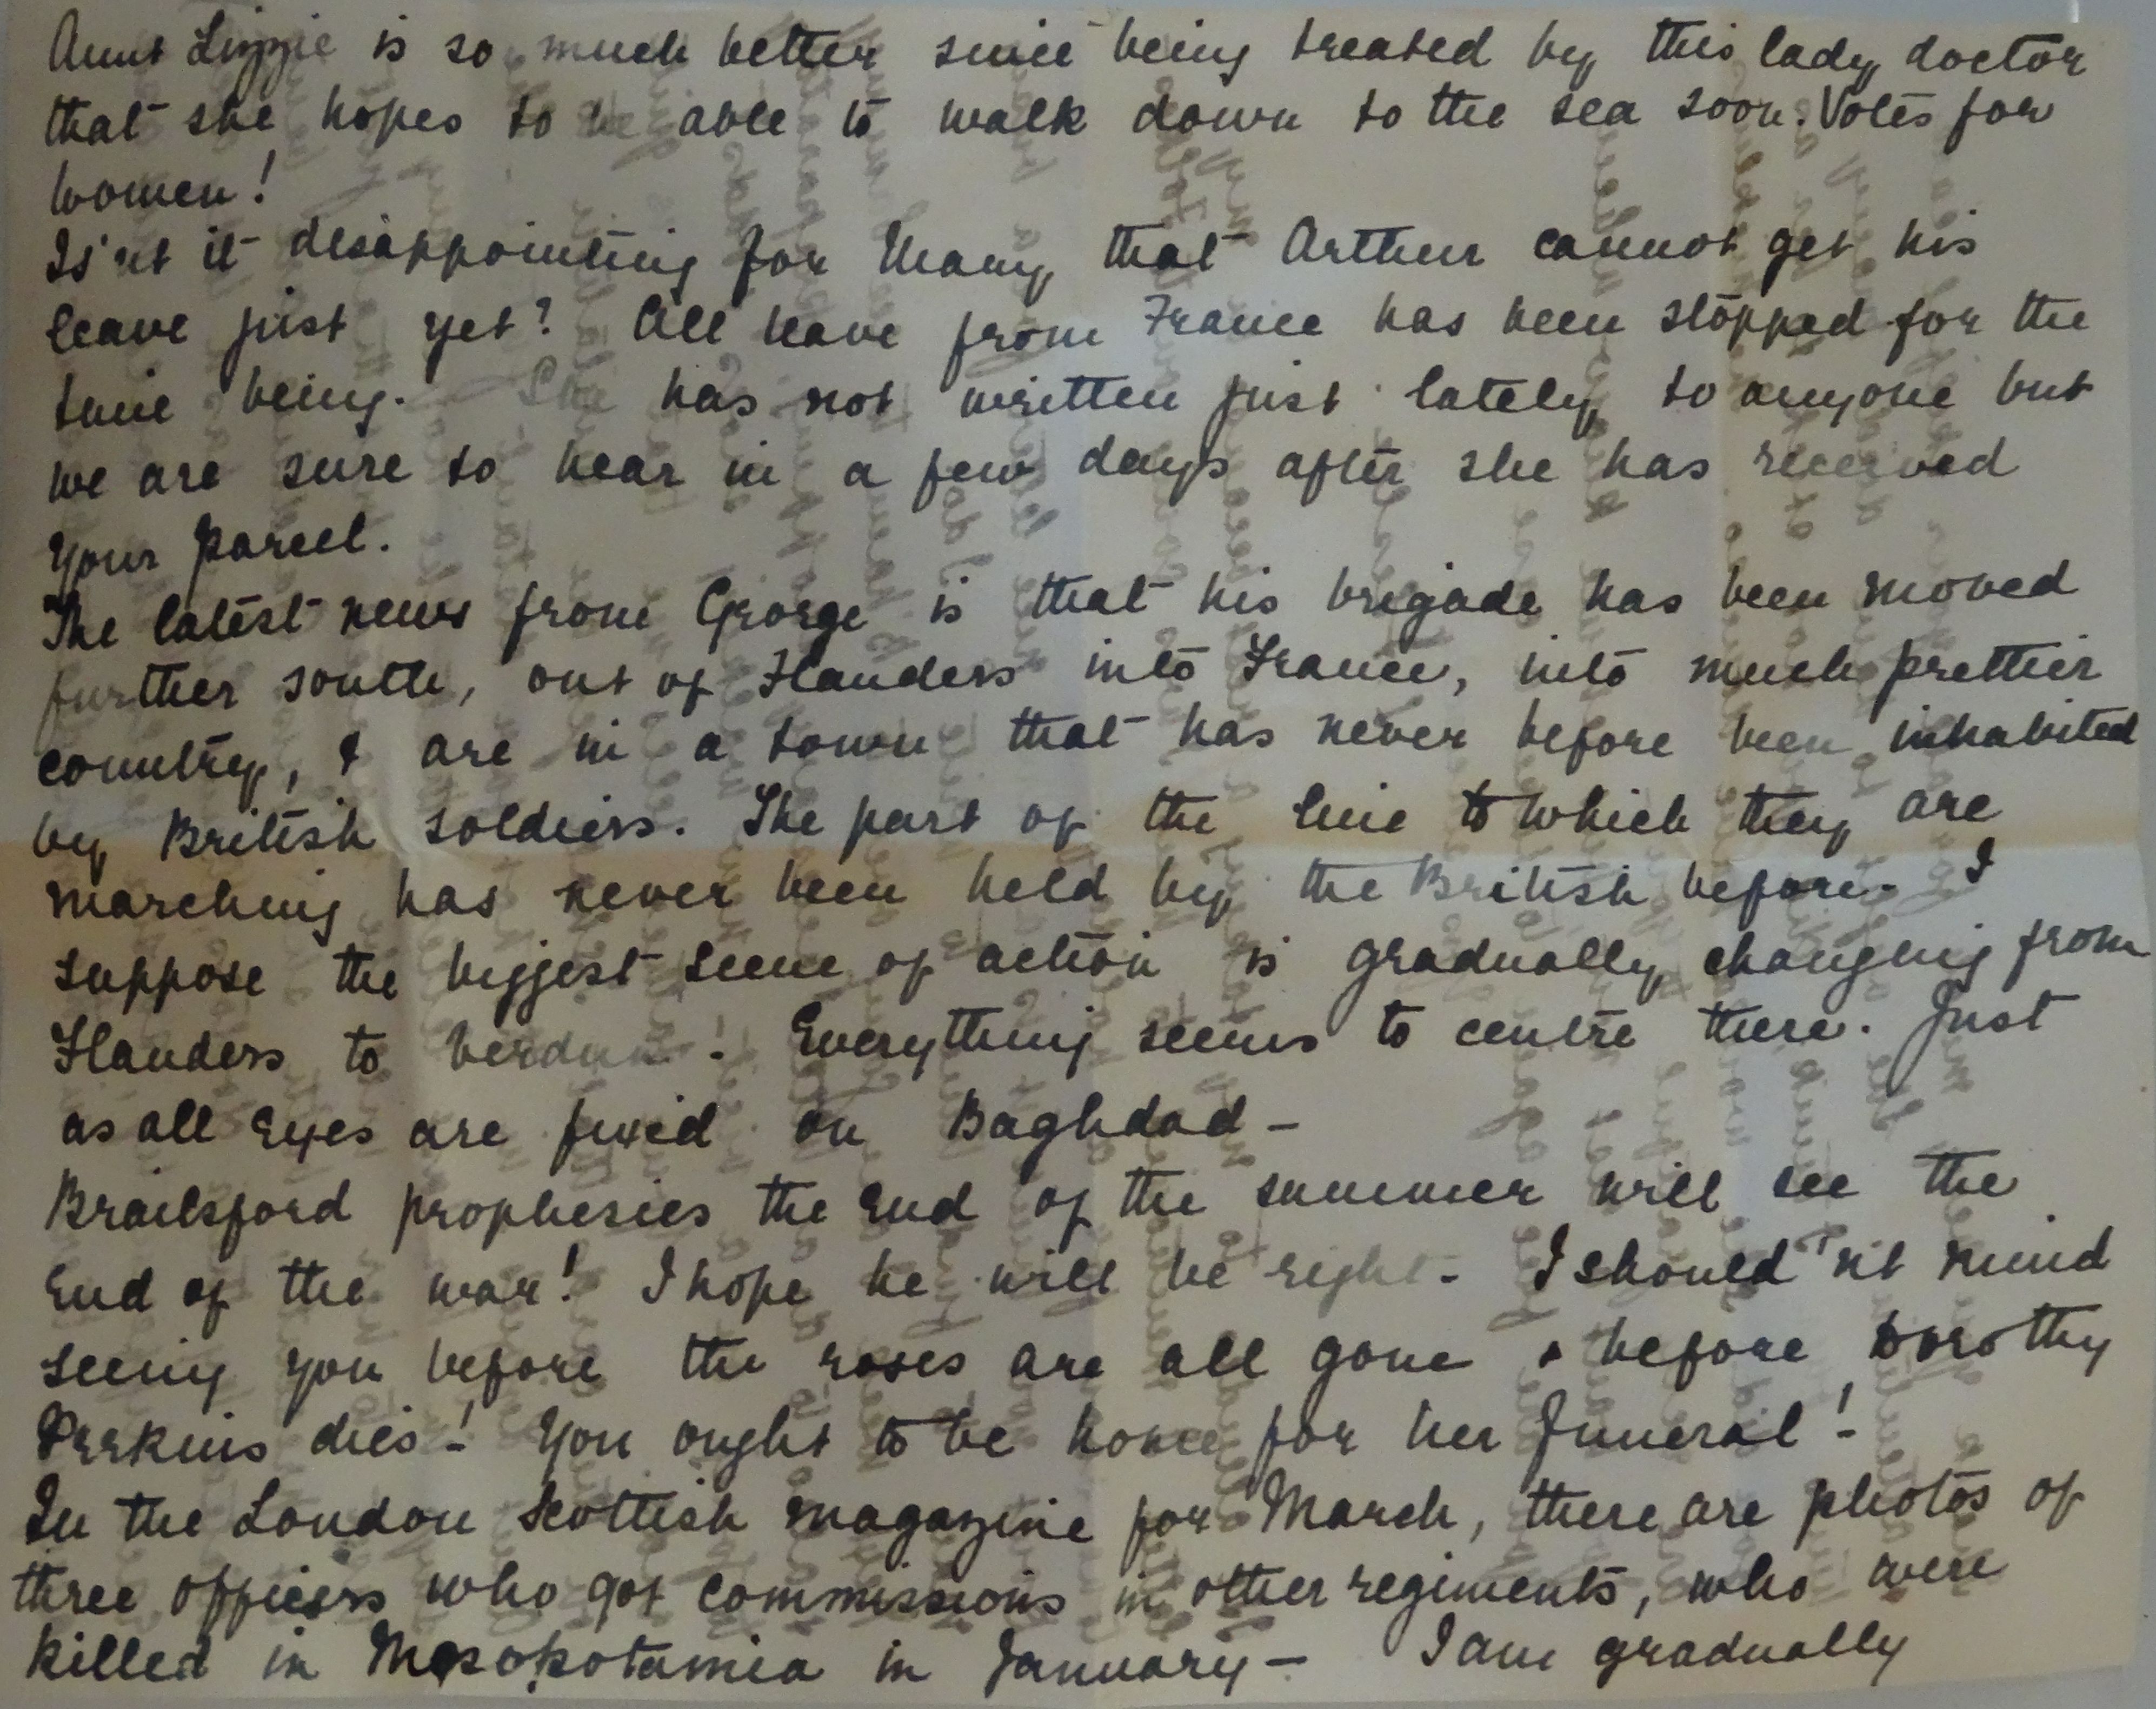 Aunt Lizzie is so much better since being treated by this lady doctor
that she hopes to be able to walk down to the sea soon. Votes for
women!
Is'nt it disappointing for Mary that Arthur cannot get his
leave just yet? All leave from France has been stopped for the
time being. She has not written just lately to anyone but
we are sure to hear in a few days after she has received
your parcel.
The latest news from George is that his brigade has been moved
further south, out of Flanders into France, into much prettier
country, & are in a town that has never before been inhabited
by British soldiers. The part of the line to which they are
marching has never been held by the British before. I
suppose the biggest scene of action is gradually changing from
Flanders to Verdun! Everything seems to centre there. Just
as all eyes are fixed on Baghdad –
Brailsford prophesies the end of the summer will see the
end of the war! I hope he will be right. I should'nt mind
seeing you before the roses are all gone & before Dorothy
Perkins dies! You ought to be home for her funeral!
In the London Scottish magazine for March, there are photos of
three officers who got commissions in other regiments, who were
killed in Mesopotamia in January – I am gradually